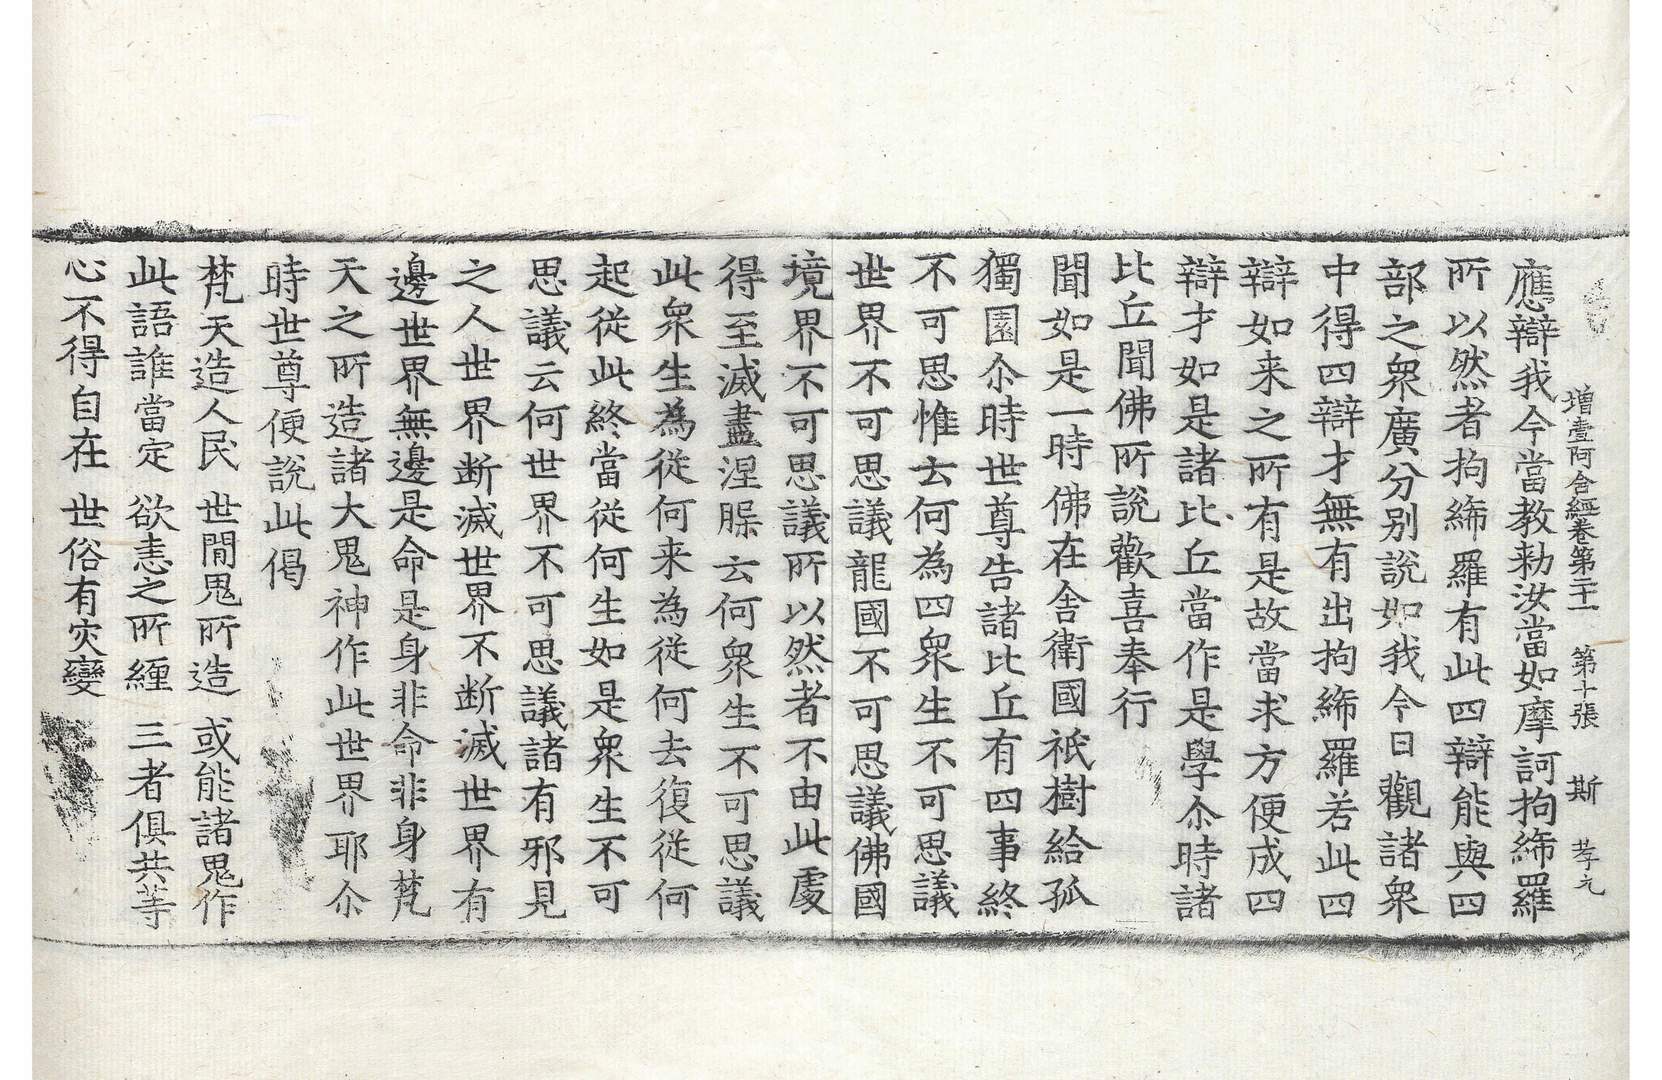 增壹阿含經卷第二十一　第十張　斯　孝元
應辯我今當教勑汝當如摩訶拘絺羅
所以然者拘絺羅有此四辯能與四
部之衆廣分別說如我今日觀諸衆
中得四辯才無有出拘絺羅若此四
辯如来之所有是故當求方便成四
辯才如是諸比丘當作是學尒時諸
比丘聞佛所說歡喜奉行
聞如是一時佛在舍衛國祇樹給孤
獨園尒時世尊告諸比丘有四事終
不可思惟云何為四衆生不可思議
世界不可思議龍國不可思議佛國
境界不可思議所以然者不由此處
得至滅盡涅槃云何衆生不可思議
此衆生為從何来為從何去復從何
起從此終當從何生如是衆生不可
思議云何世界不可思議諸有邪見
之人世界断滅世界不断滅世界有
邊世界無邊是命是身非命非身梵
天之所造諸大鬼神作此世界耶尒
時世尊便說此偈
梵天造人民　世間鬼所造　或能諸鬼作
此語誰當定　欲恚之所纏　三者俱共等
心不得自在　世俗有灾變